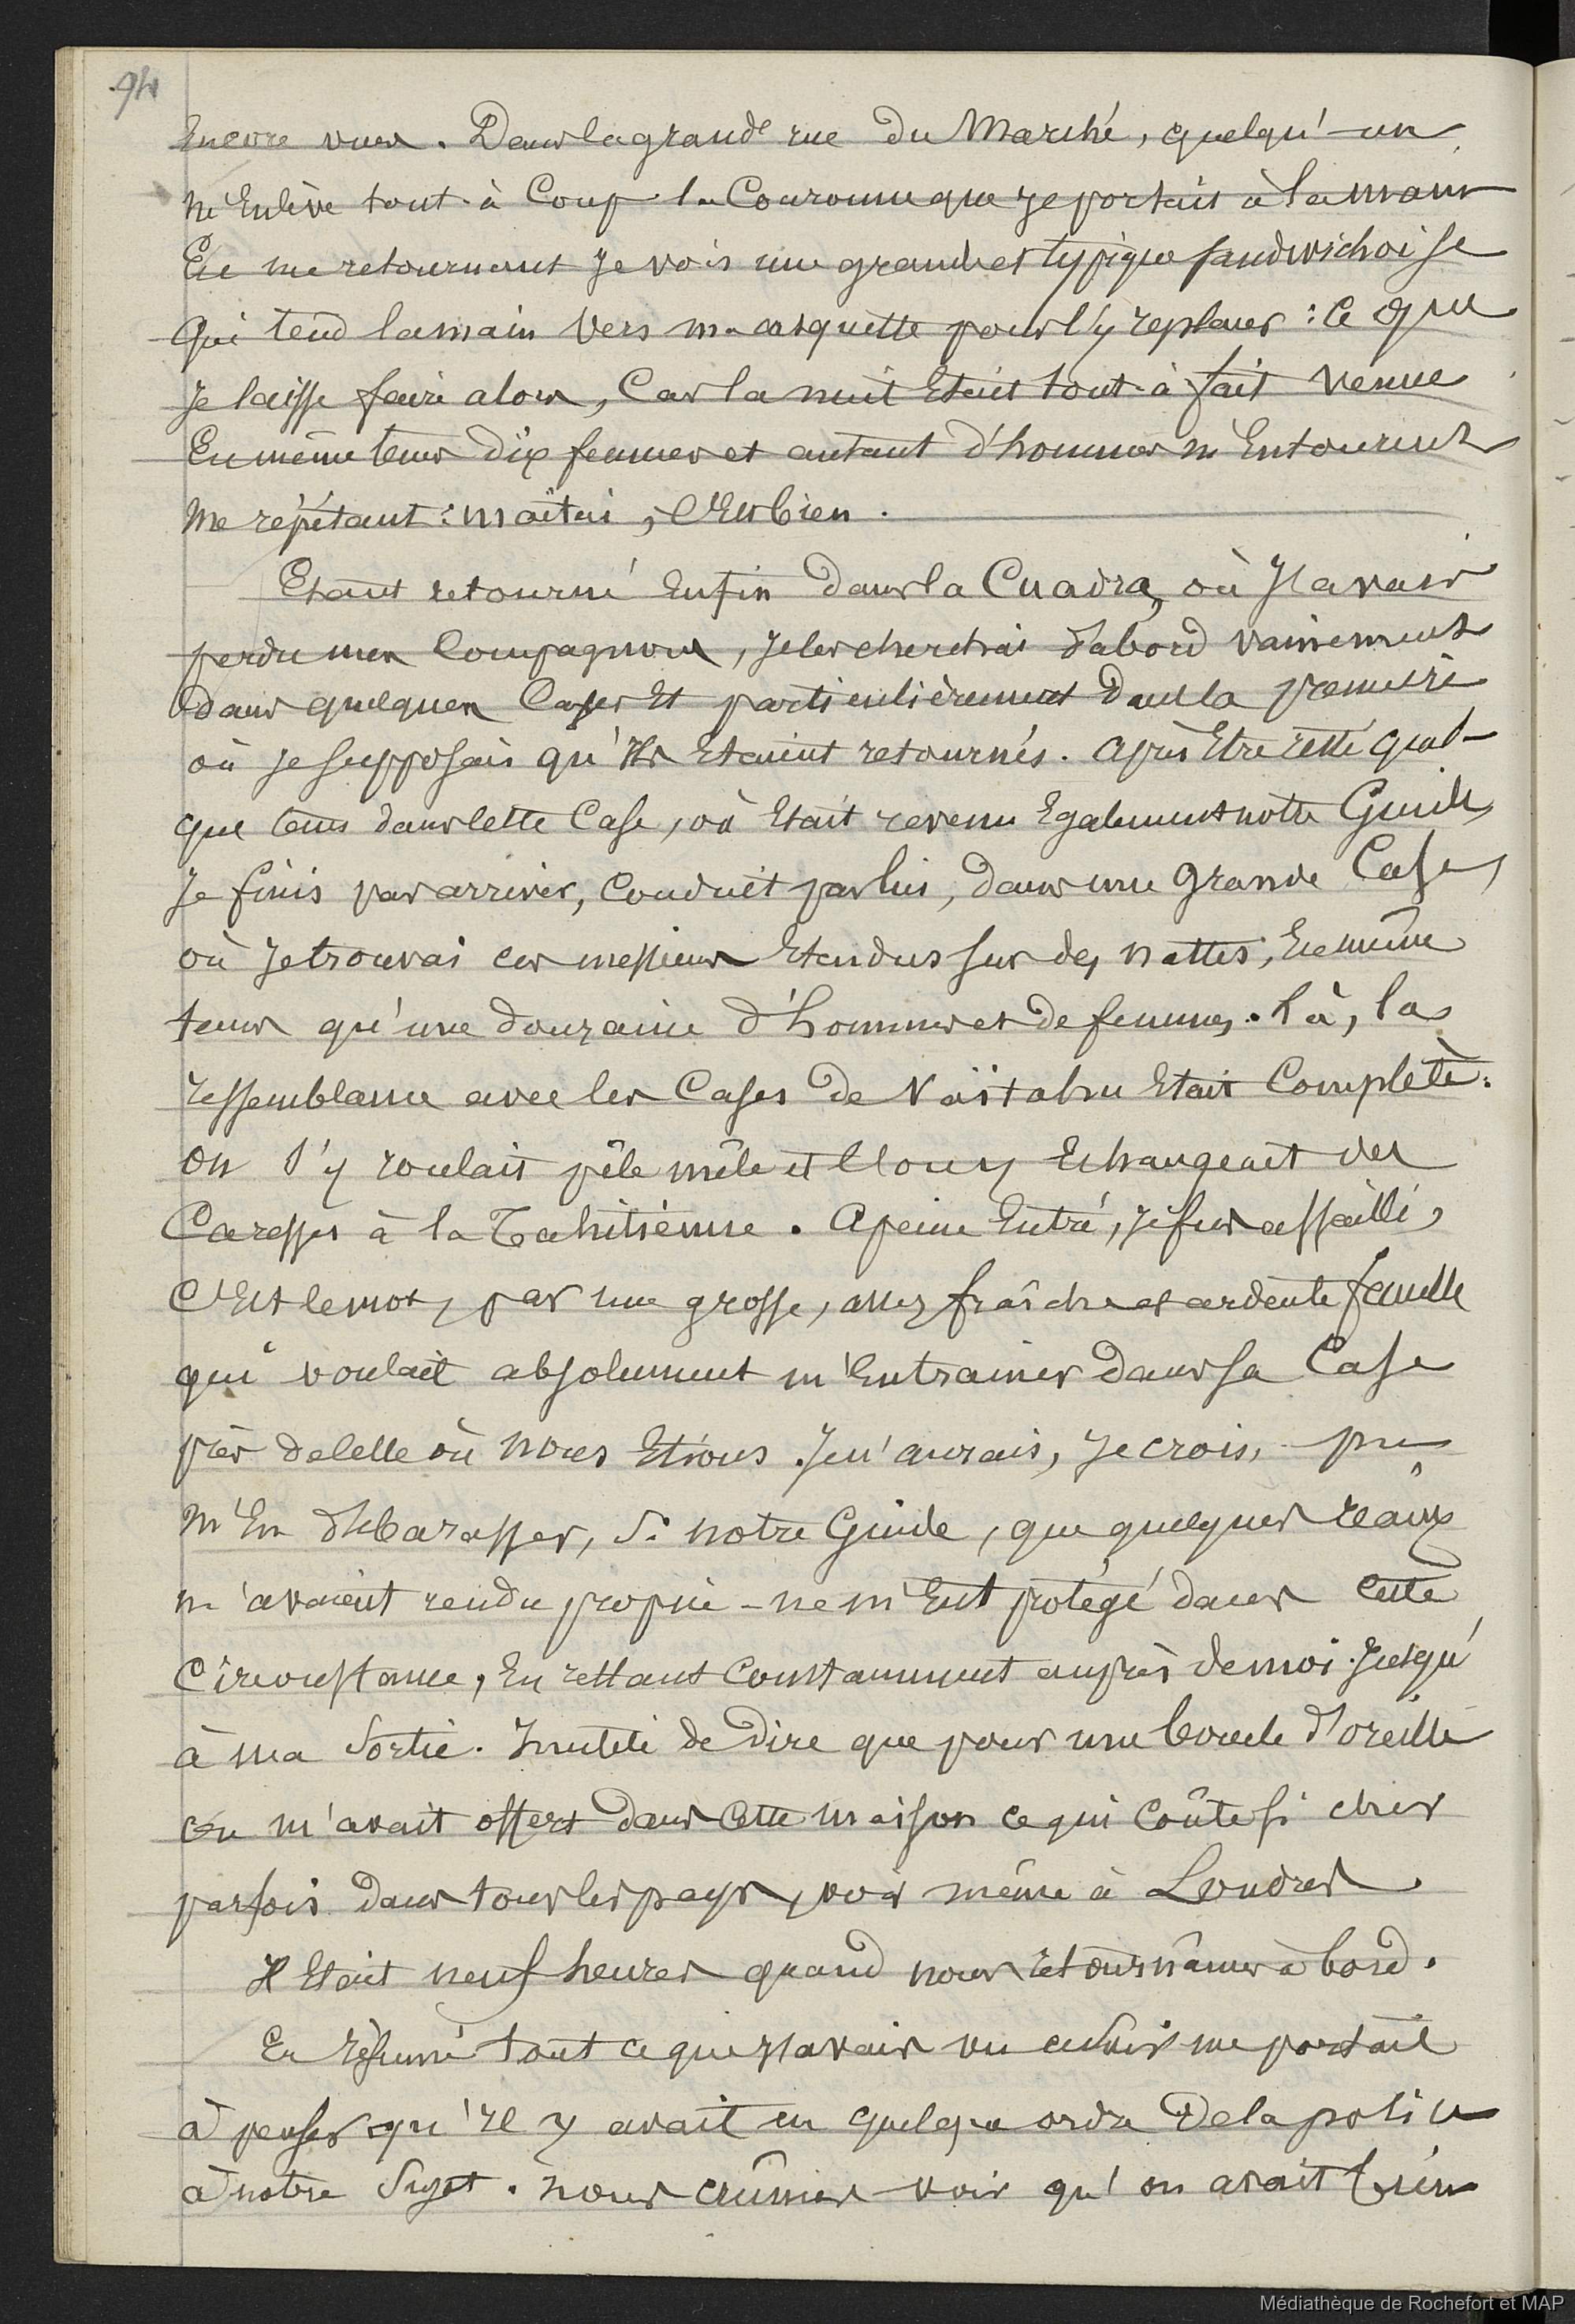 94
Encore vues. Dans la grande rue du Marché, quelqu'un
m'Enlève tout à Coup la Couronne que je portais à la main
En me retournant je vois une grande et typique sandwichoise
qui tend la main vers ma casquette pour l'y replacer : ce que
je laisse faire alors, Car la nuit Etait tout à fait venue
En même tems dix femmes et autant d'hommes m'Entourent
me répétant : maïtai, c'Est bien.
Etant retourné Enfin dans la Cuadra, où j'avais
perdu mes Compagnons, je les cherchai d'abord vainement
dans quelques Cases Et particulièrement dans la première
où je supposais qu'ils Etaient retournés. après Etre resté quel-
que tems dans cette Case, où Etait revenu Egalement notre Guide,
je finis par arriver, Conduit par lui, dans une grande Case,
où je trouvai ces messieurs Etendus sur des nattes, En même
tems qu'une douzaine d'hommes et de femmes. Là, la
ressemblance avec les Cases de Vaïtahu Etait Complète :
on s'y roulait pêle mêle et l'on y Echangeait des
Caresses à la Tahitienne. A peine Entré, je fus assailli,
c'Est le mot, par une grosse, assez fraîche et ardente femelle
qui voulait absolument m'Entrainer dans sa Case
près de celle où nous Etions. Je n'aurais, je crois, pu
m'En débarasser, si notre Guide, que quelques réaux
m'avaient rendu propice - ne m'Eut protégé dans cette
Circonstance, En restant Constamment auprès de moi jusqu'
à ma sortie. Inutile de dire que pour une boucle d'oreille
on m'avait offert dans cette maison ce qui coûte si cher
parfois dans tous les pays, voir même à Londres.
Il Etait neuf heures quand nous retournâmes à bord.
En résumé tout ce que j'avais vu ce soir me portait
à penser qu'il y avait eu quelque ordre de la police
à notre sujet. nous crûmes voir qu'on avait bien
Médiathèque de Rochefort et MAP